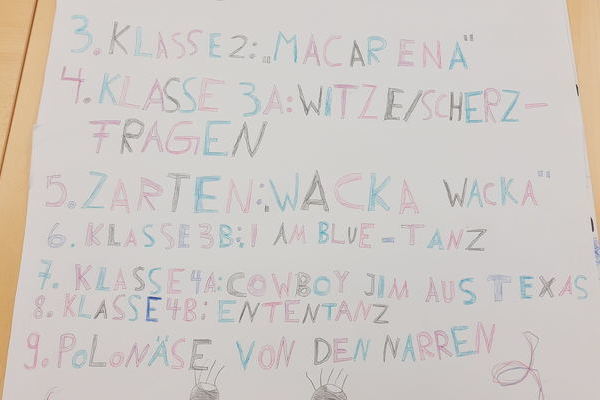 3. KLASSE 2: „MACARENA"
4. KLASSE 3A: WITZE/SCHERZ-
FRAGEN
5. ZARTEN: „WACKA WACKA"
6. KLASSE 3B: I AM BLUE-TANZ
7. KLASSE 4A: COWBOY JIM AUS TEXAS
8. KLASSE 4B: ENTENTANZ
9. POLONÄSE VON DEN NARREN